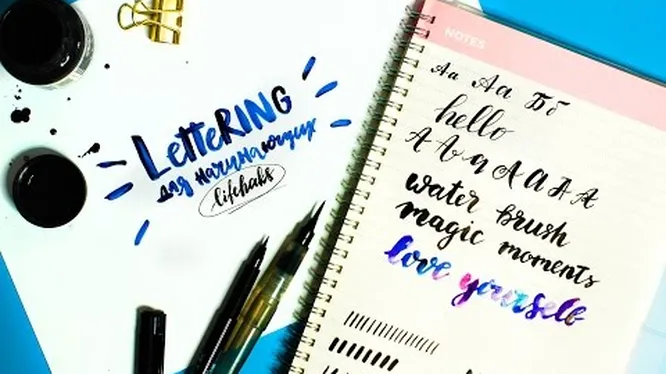 LetteRING
для начинающих
lifehaks
NOTES
Аа Аа Бб
hello
А А А А А А
water brush
magic moments
love yourself